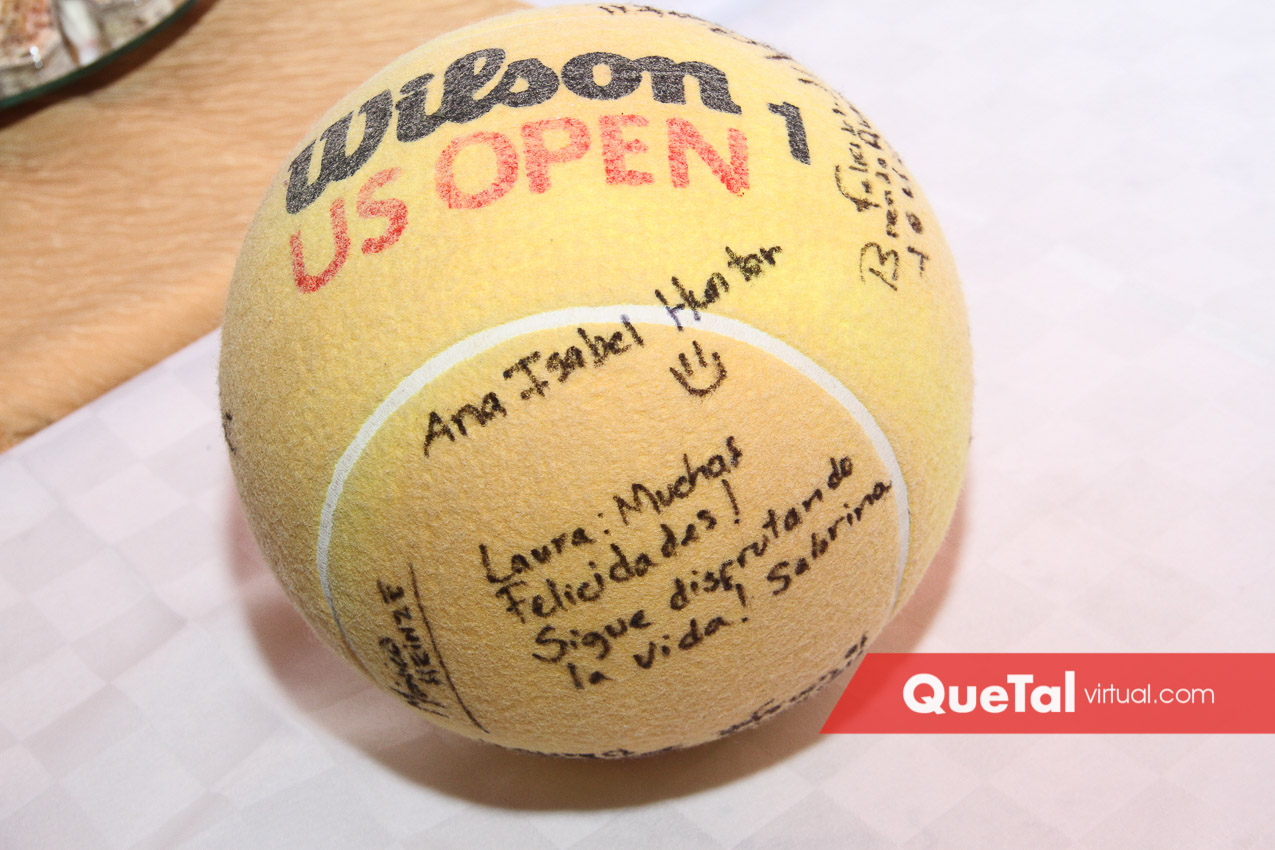 Wilson 1
US OPEN
Ana Isabel Huntar
Laura: Muchas
Felicidades!
Sigue disfrutando
la vida! Sabrina
HEINZE
QueTal virtual.com